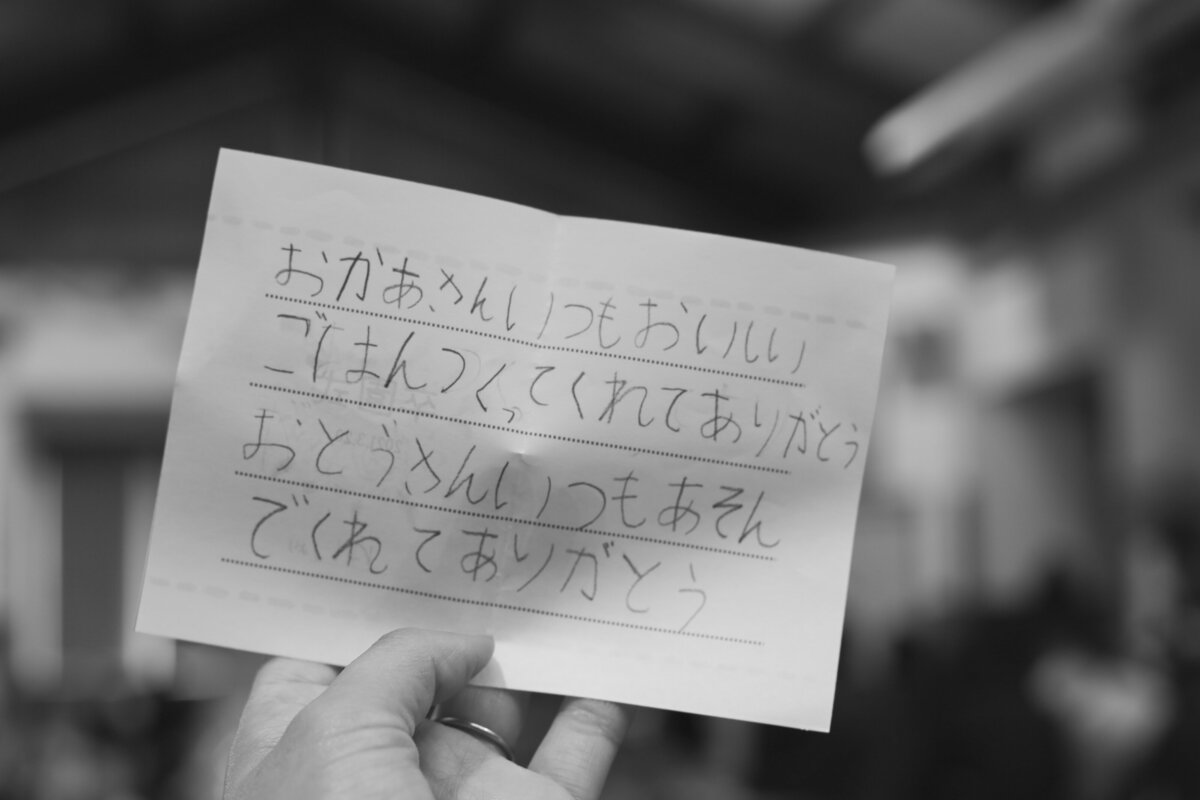 おかあさんいつもおいしい
ごはんつくってくれてありがとう
おとうさんいつもあそん
でくれてありがとう